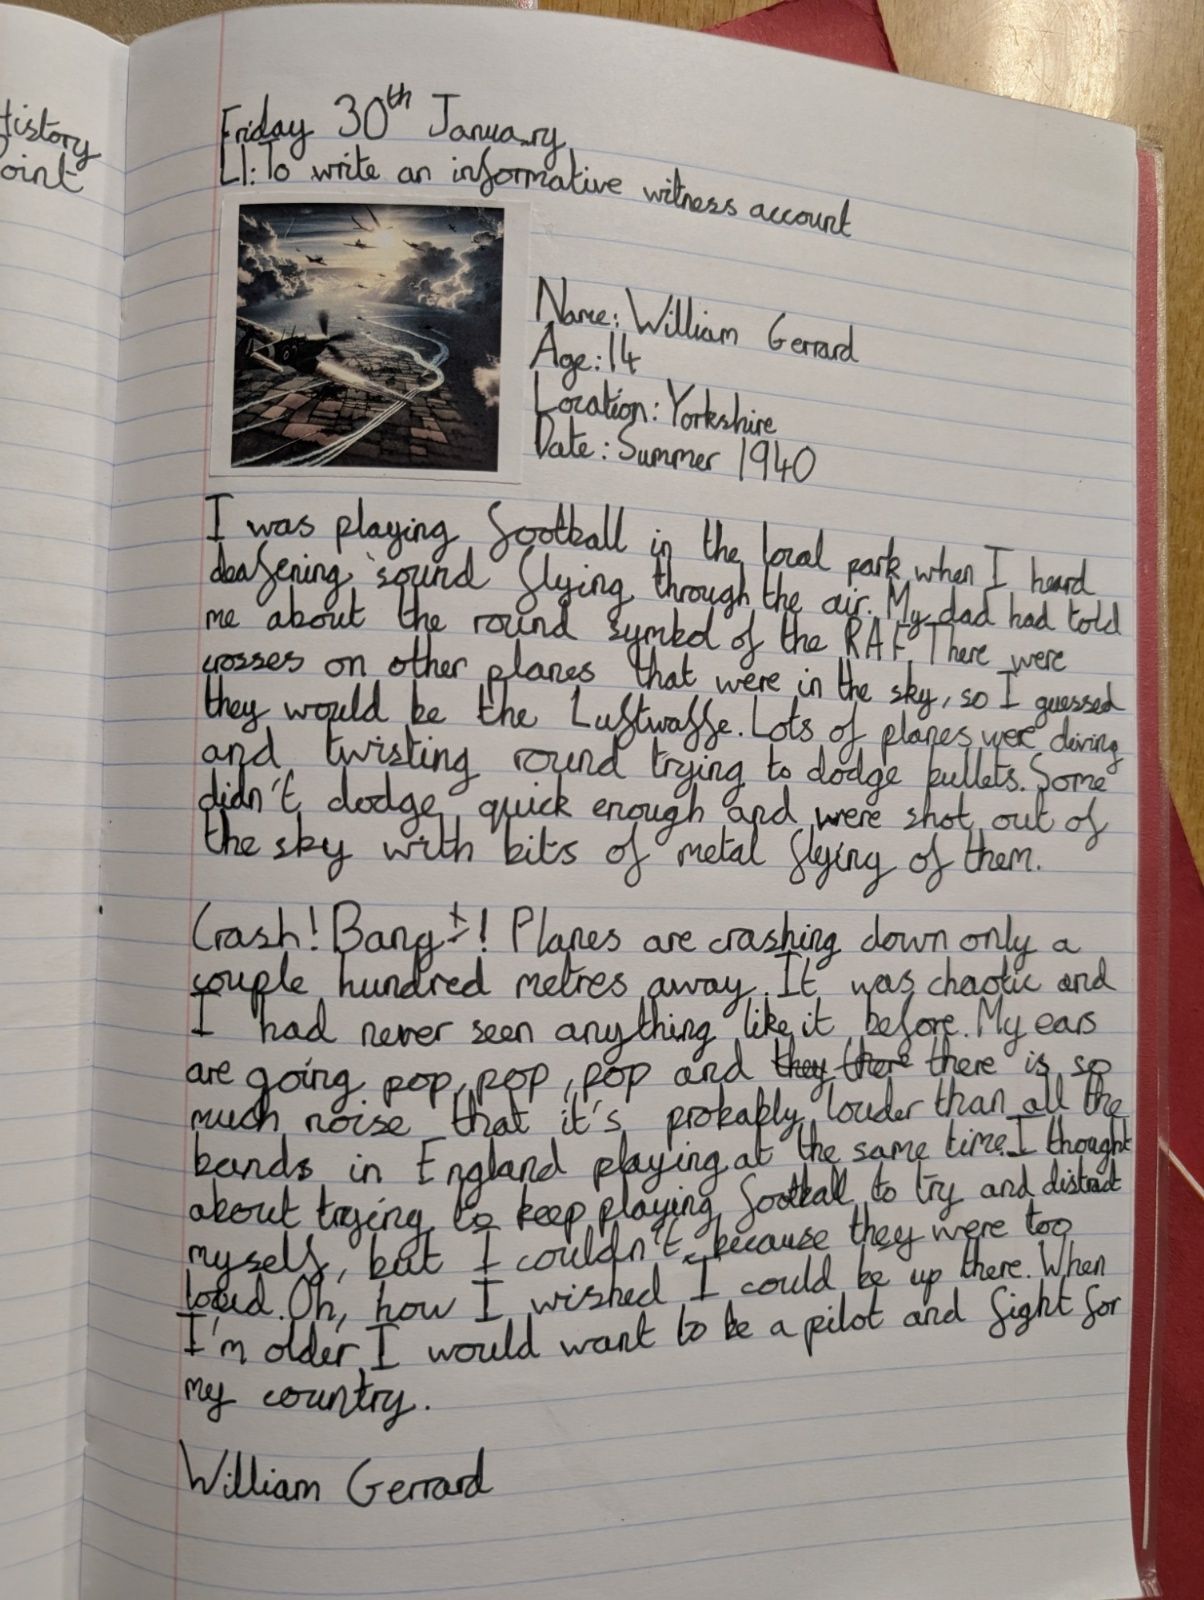 History
Point
Friday 30th January
LI: To write an informative witness account
Name: William Gerrard
Age: 14
Location: Yorkshire
Date: Summer 1940
I was playing football in the local park when I heard
deafening sound flying through the air. My dad had told
me about the round symbol of the RAF. There were
crosses on other planes that were in the sky, so I guessed
they would be the Luftwaffe. Lots of planes were diving
and twisting round trying to dodge bullets. Some
didn't dodge quick enough and were shot out of
the sky with bits of metal flying of them.
Crash! Bang! Planes are crashing down only a
couple hundred metres away. It was chaotic and
I had never seen anything like it before. My ears
are going pop, pop, pop and they there there is so
much noise that it's probably louder than all the
bands in England playing at the same time. I thought
about trying to keep playing football to try and distract
myself, but I couldn't because they were too
loud. Oh, how I wished I could be up there. When
I'm older, I would want to be a pilot and fight for
my country.
William Gerrard